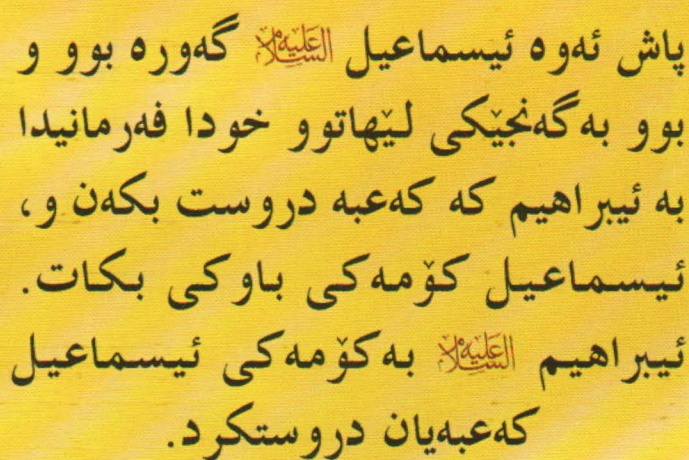 پاش ئەوە ئیسماعیل علیەالسلام گەورە بوو و
بوو بە گەنجێکی لێهاتوو خودا فەرمانیدا
بە ئیبراهیم کە کەعبە دروست بکەن و،
ئیسماعیل کۆمەکی باوکی بکات.
ئیبراهیم علیەالسلام بەکۆمەکی ئیسماعیل
کەعبەیان دروستکرد.